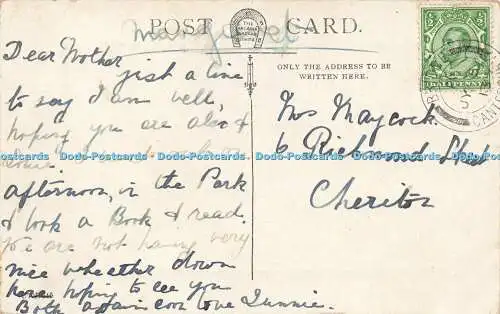 POST CARD.
Margaret
THE
ONLY THE ADDRESS TO BE
WRITTEN HERE.
HALFPENNY
Dear Mother
jist a line
to say I am well,
hoping you are also &
afternoon, in the Park
& took a Book & read.
You are not having very
nice wheether down
here hoping to see you
Both again soon love
Mrs Maycock.
6 Richmond Street
Cheriton
Dodo-Postcards Dodo-Postcards Dodo-Postcards Dodo-Postcards Dodo-Postcards